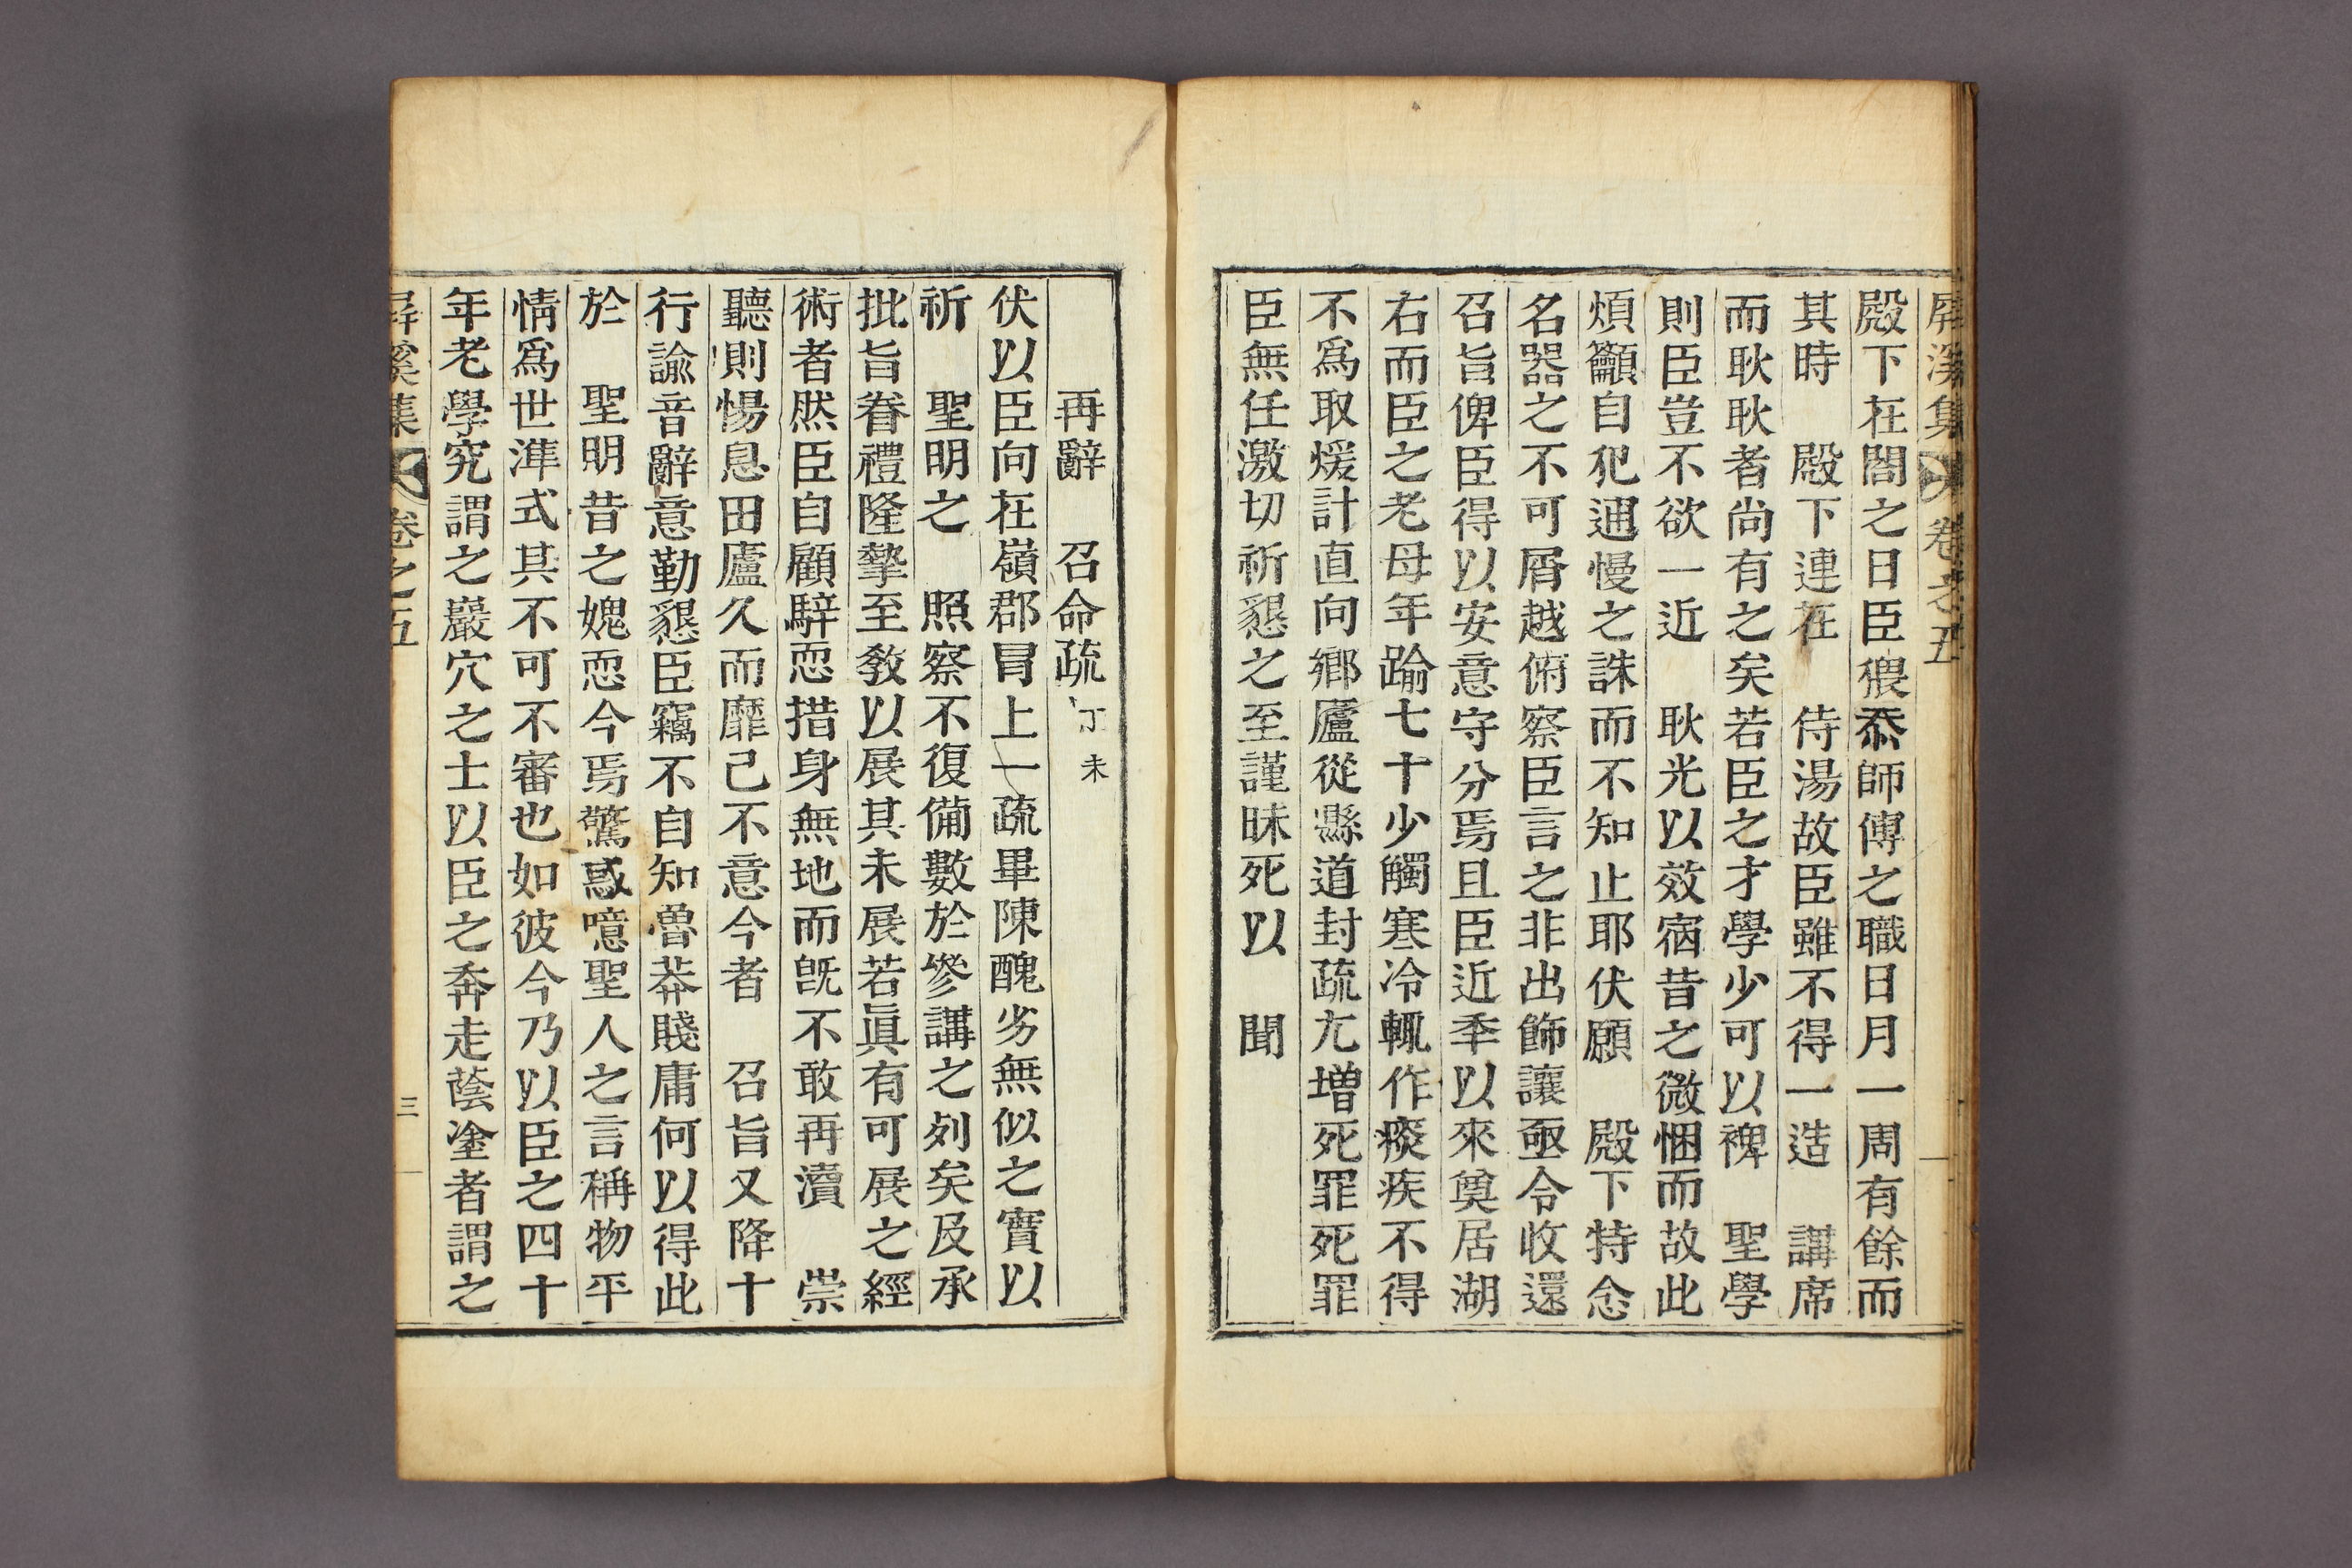 屛溪集 卷之五
殿下在閤之日臣猥忝師傅之職日月一周有餘而
其時 殿下連在 侍湯故臣雖不得一造 講席
而耿耿者尚有之矣若臣之才學少可以裨 聖學
則臣豈不欲一近 耿光以效宿昔之微悃而故此
煩籲自犯逋慢之誅而不知止耶伏願 殿下特念
名器之不可屑越俯察臣言之非出飾讓亟令收還
召旨俾臣得以安意守分焉且臣近年以來奠居湖
右而臣之老母年踰七十少觸寒冷輒作痰疾不得
不爲取煖計直向鄕廬從縣道封疏尤增死罪死罪
臣無任激切祈懇之至謹昧死以 聞
再辭 召命疏 丁未
伏以臣向在嶺郡冒上一疏畢陳醜劣無似之實以
祈 聖明之 照察不復備數於參講之列矣及承
批旨眷禮隆摯至敎以展其未展若眞有可展之經
術者然臣自顧騂恧措身無地而旣不敢再瀆 崇
聽則惕息田廬久而靡已不意今者 召旨又降十
行諭音辭意勤懇臣竊不自知魯莽賤庸何以得此
於 聖明昔之媿恧今焉驚惑噫聖人之言稱物平
情爲世準式其不可不審也如彼今乃以臣之四十
年老學究謂之巖穴之士以臣之奔走蔭塗者謂之
屛溪集 卷之五 三